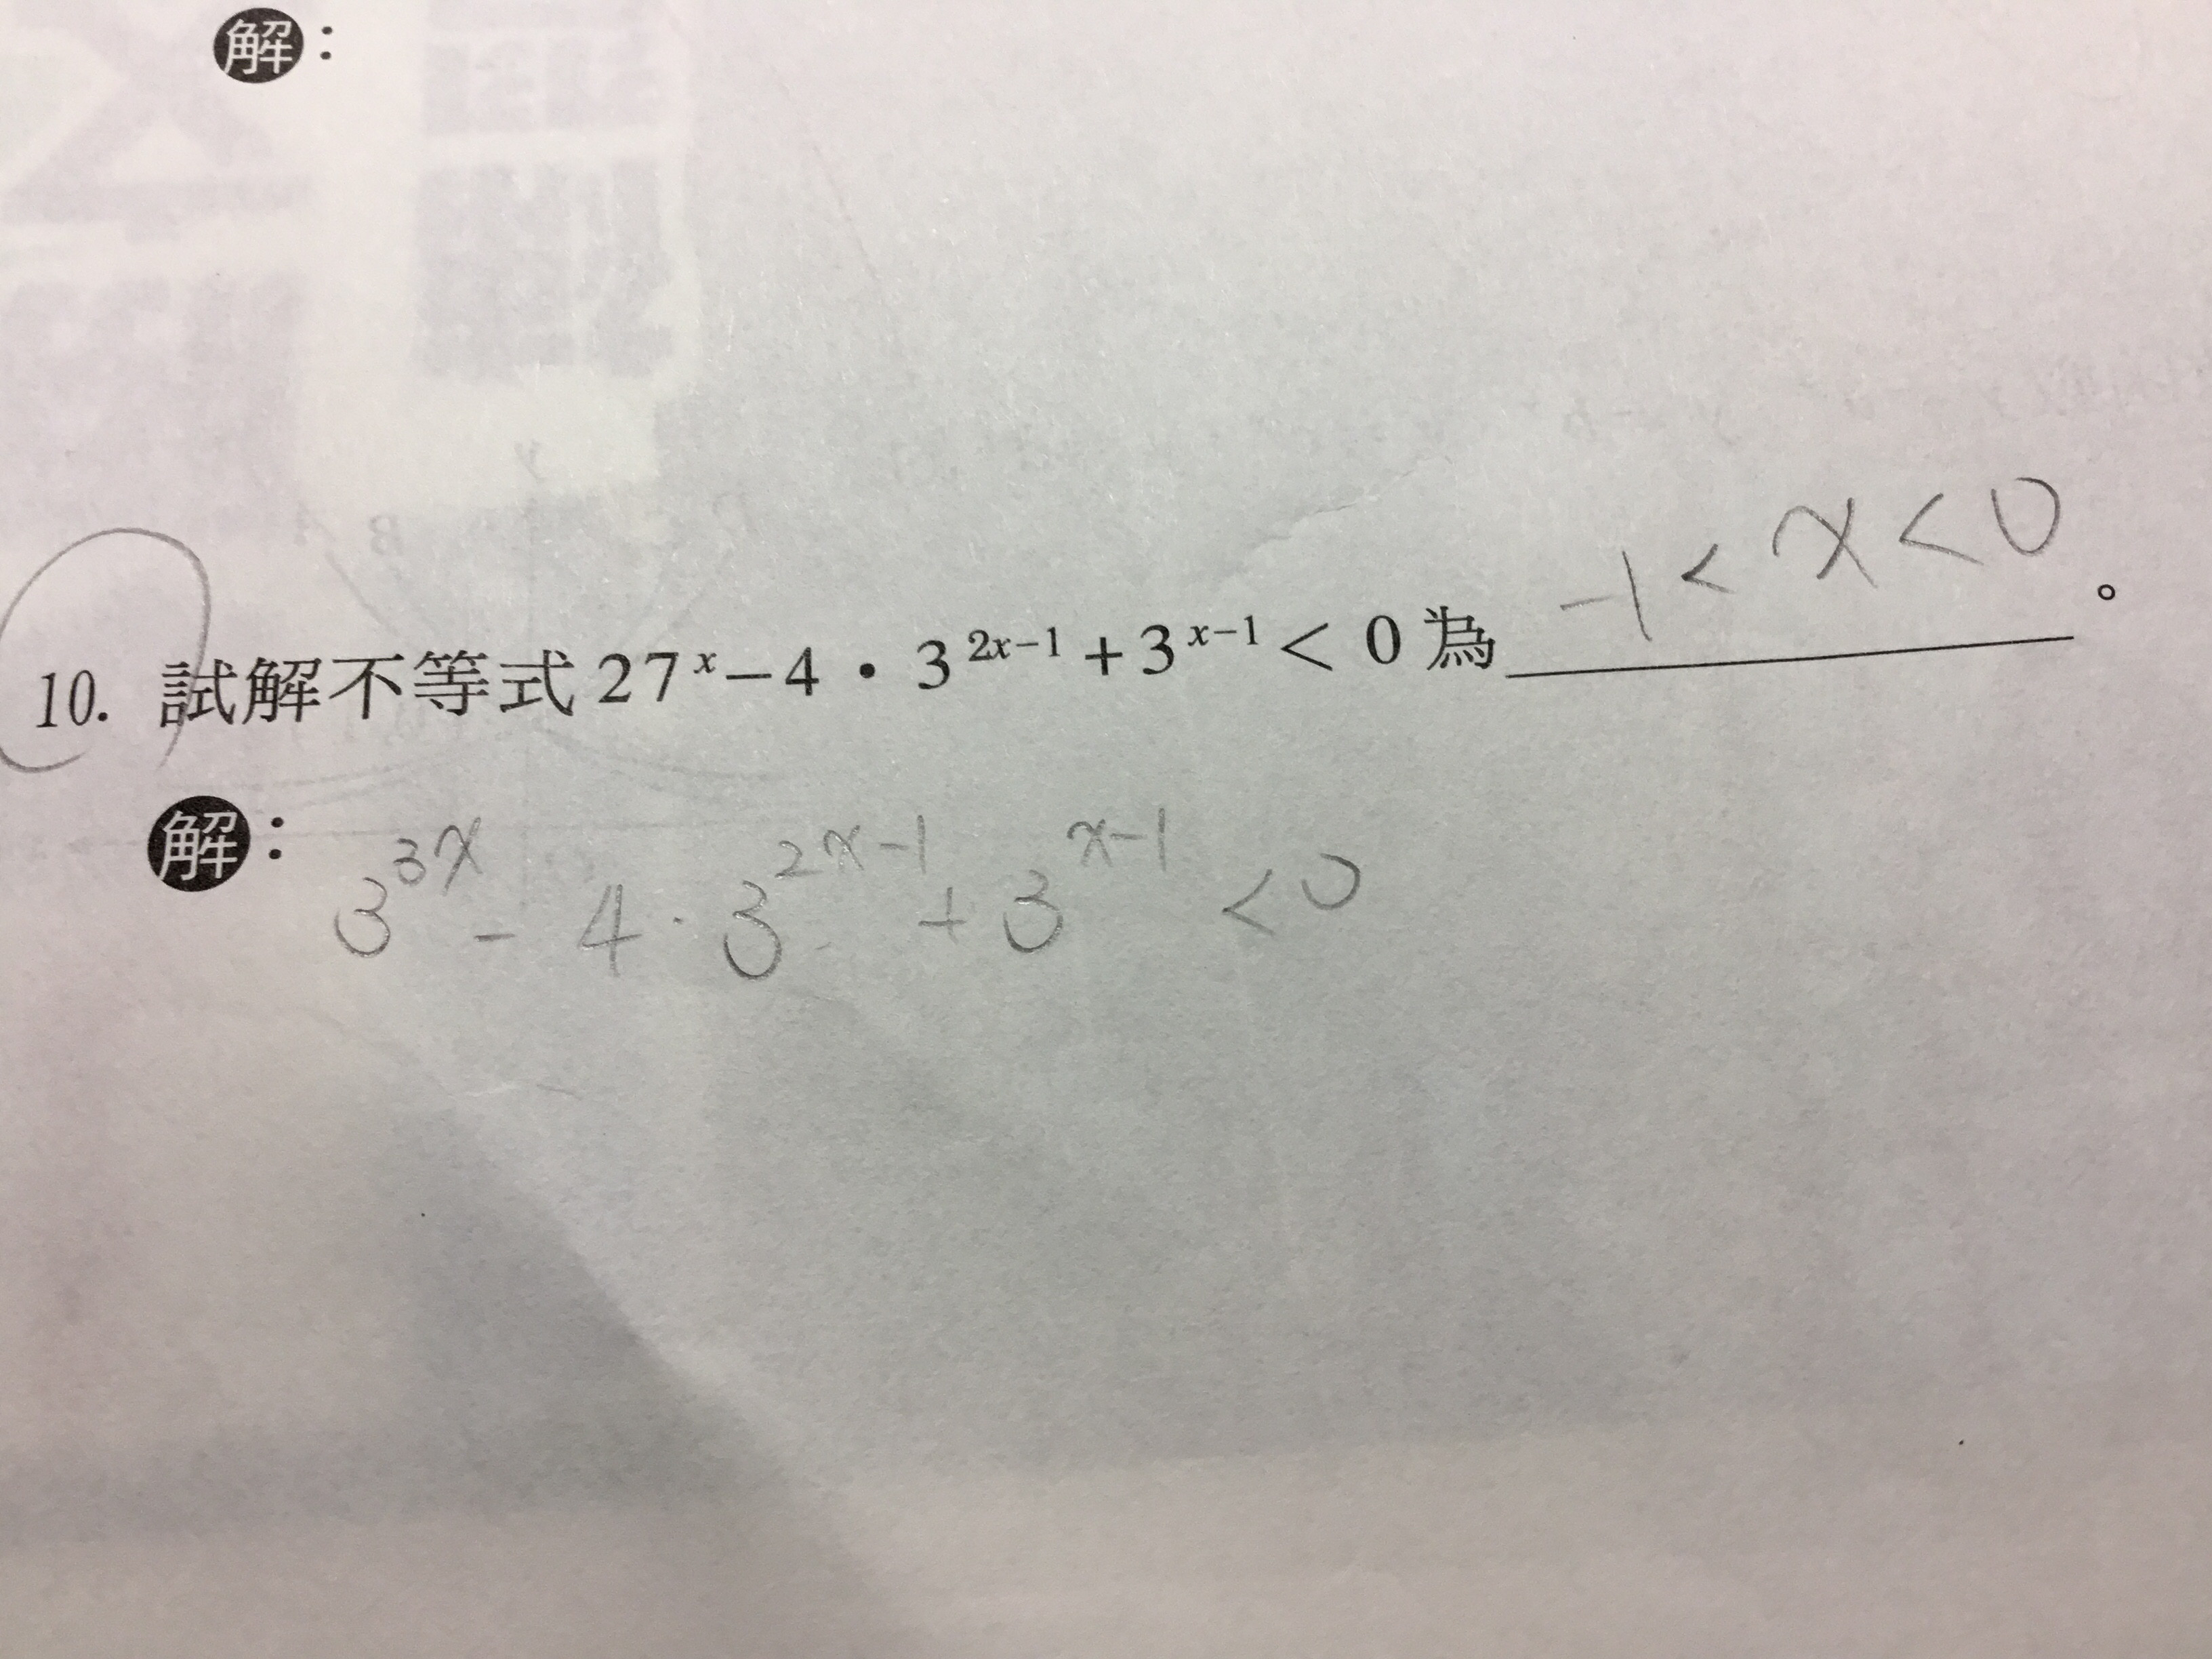 解：
-1 < x < 0
10. 試解不等式 27^x − 4 • 3^{2x−1} + 3^{x−1} < 0 為＿＿＿＿＿＿。
解： 3^{3x} - 4 · 3^{2x-1} + 3^{x-1} < 0